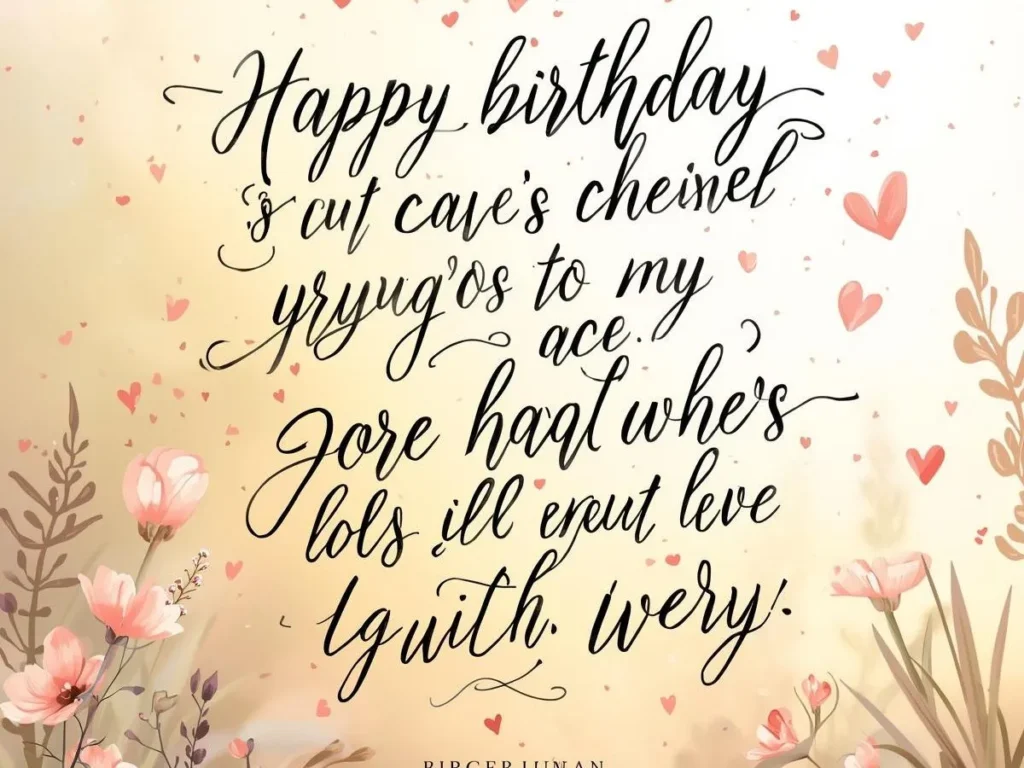 Happy birthday
cut cave's cheinel
yryug'os to my
ace.
Jore haql whe's
lols ill ereut leve
lguith. Wery!.